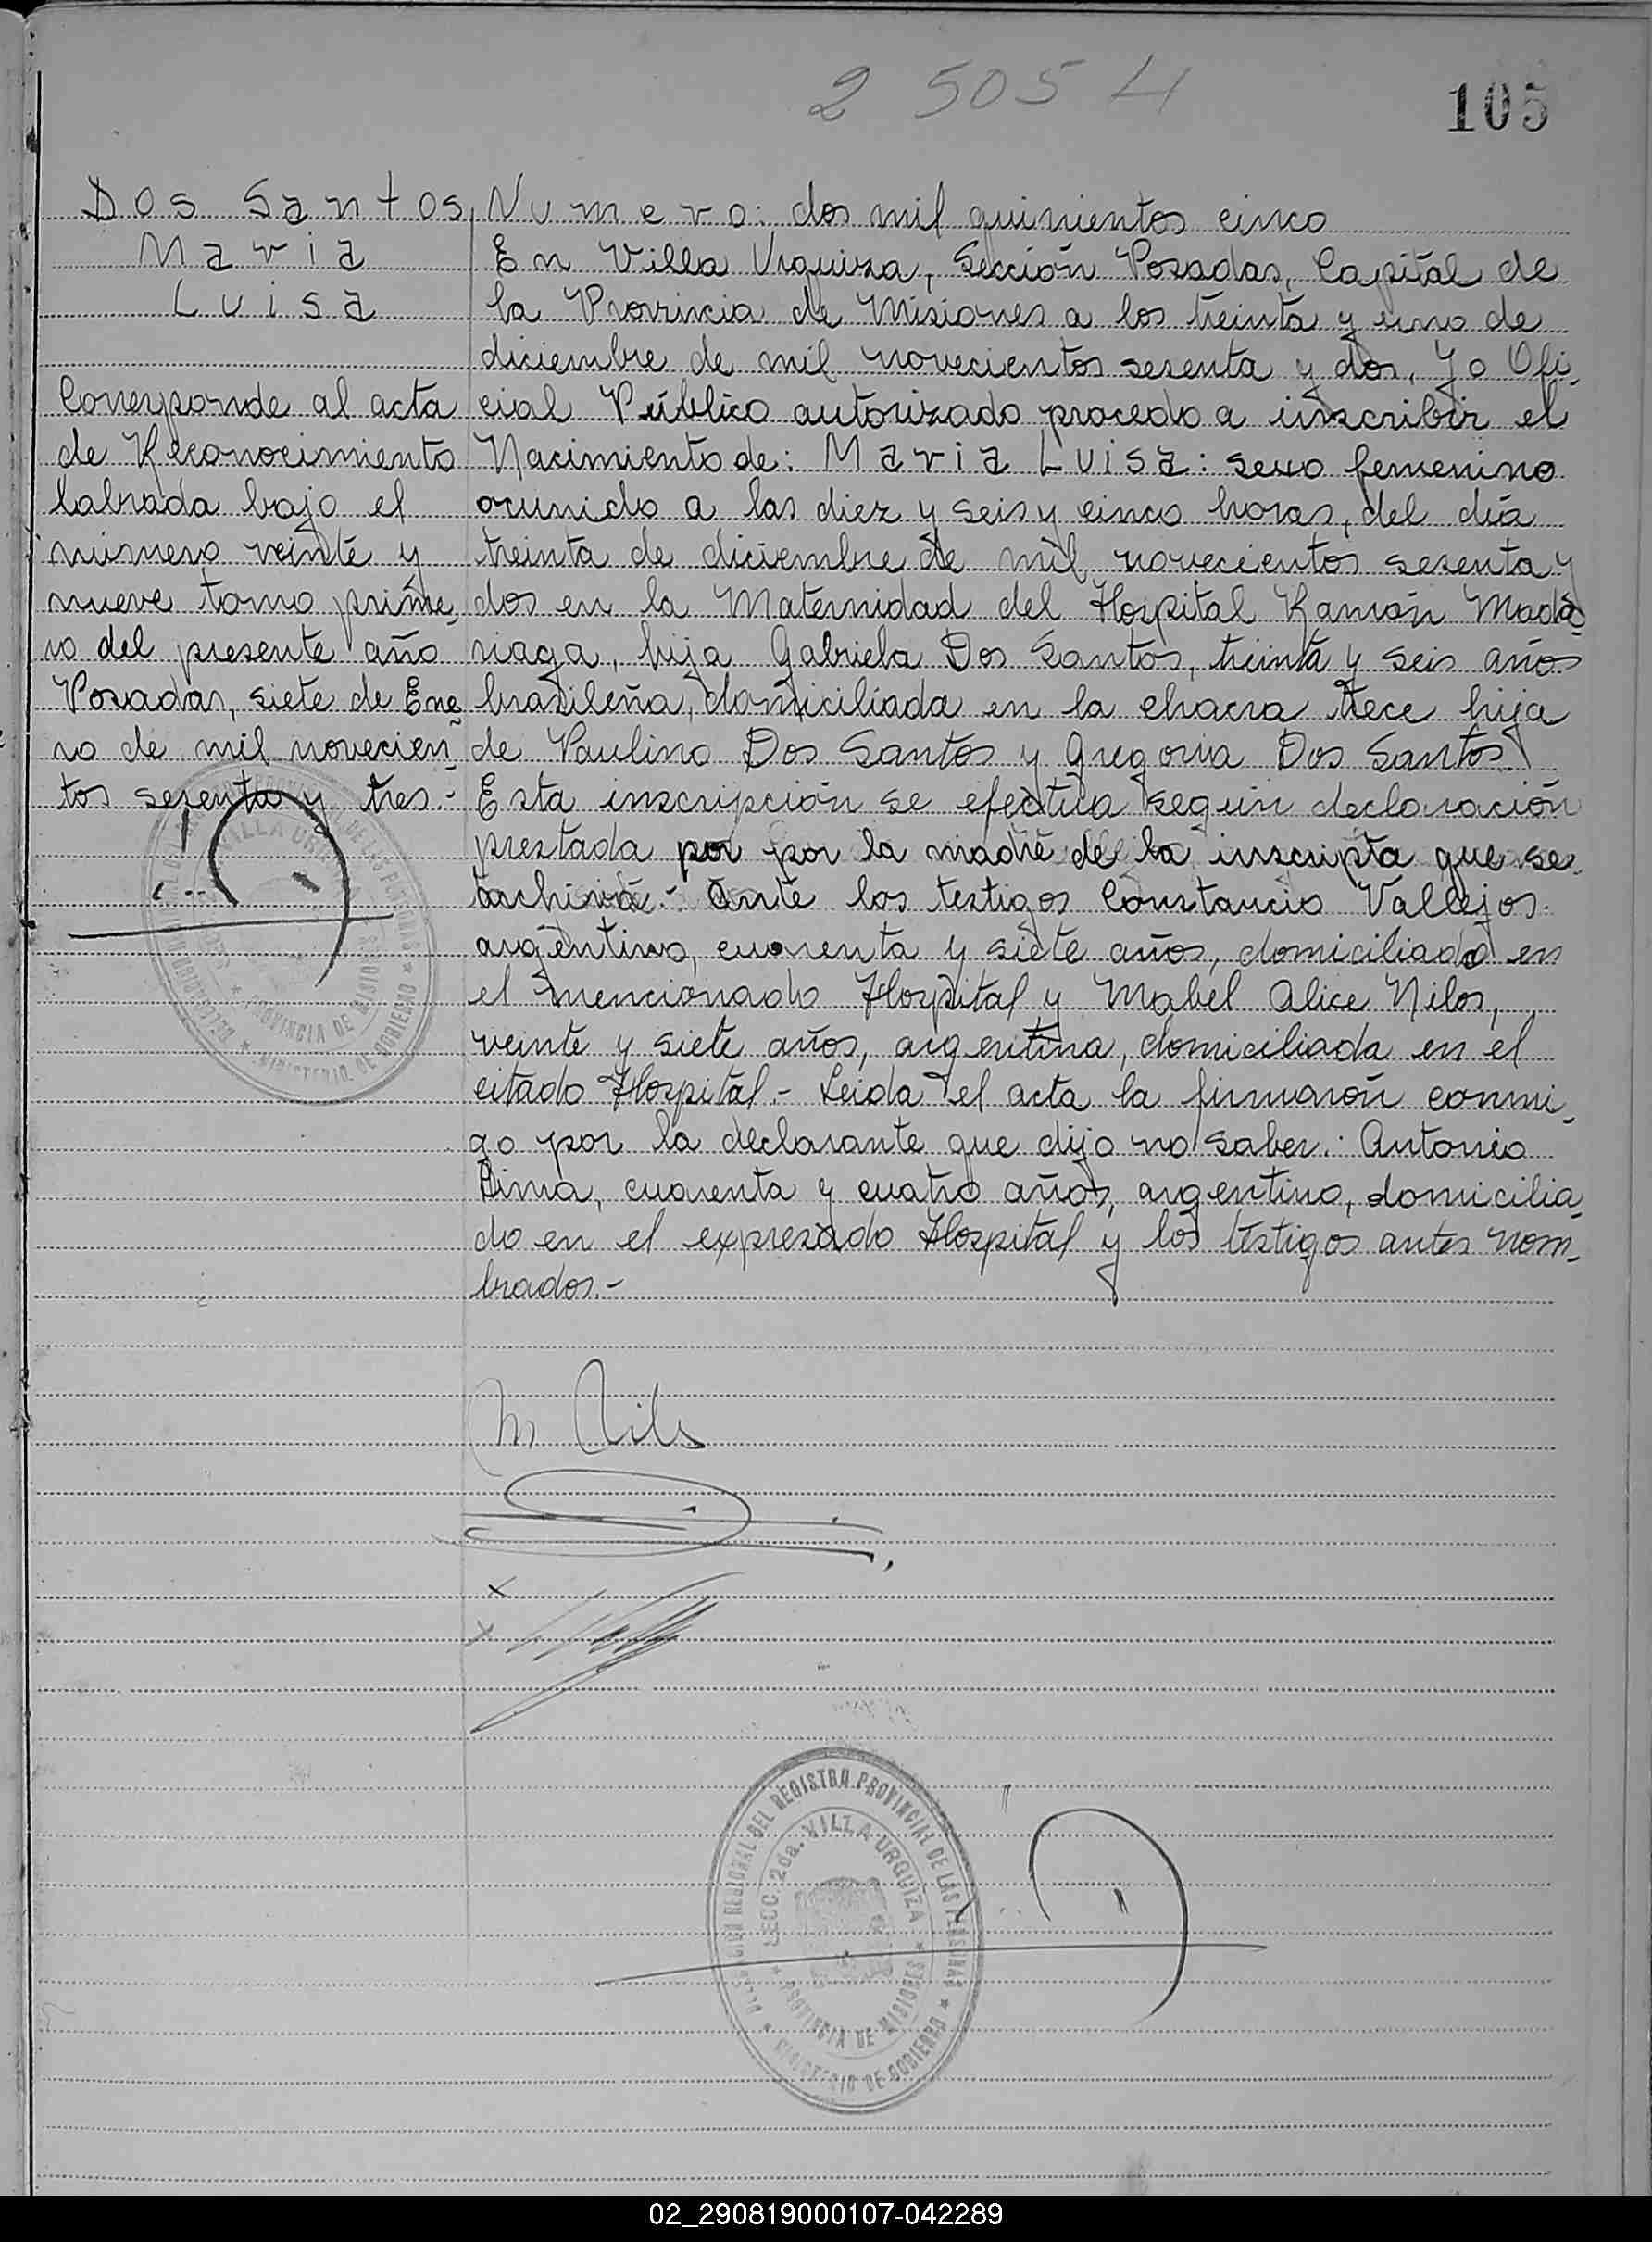 2 505 H
105
Dos Santos,
Maria
Luisa
Corresponde al acta
de Reconocimiento
labrada bajo el
número veinte y
nueve tomo prime_
ro del presente año
Posadas, siete de Ene_
ro de mil novecien_
tos sesenta y tres.-
Numero: dos mil quinientos cinco
En Villa Urquiza, Sección Posadas, Capital de
la Provincia de Misiones a los treinta y uno de
diciembre de mil novecientos sesenta y dos, Yo Ofi_
cial Público autorizado procedo a inscribir el
Nacimiento de: Maria Luisa: sexo femenino
ocurrido a las diez y seis y cinco horas, del día
treinta de diciembre de mil novecientos sesenta y
dos en la Maternidad del Hospital Ramón Mada_
riaga, hija Gabriela Dos Santos, treinta y seis años
brasileña, domiciliada en la chacra trece hija
de Paulino Dos Santos y Gregoria Dos Santos.
Esta inscripción se efectúa según declaración
prestada por por la madre de la inscripta que se
archiva.- Ante los testigos Constancio Vallejos.
argentino, cuarenta y siete años, domiciliado en
el mencionado Hospital y Mabel Alice Nilos,
veinte y siete años, argentina, domiciliada en el
citado Hospital.- Leida el acta la firmarón conmi_
go por la declarante que dijo no saber: Antonio
Dima, cuarenta y cuatro años, argentino, domicilia_
do en el expresado Hospital y los testigos antes nom_
brados.-
DELEGACION REGIONAL DEL REGISTRO PROVINCIAL DE LAS PERSONAS
SECC. 2da. VILLA URQUIZA
PROVINCIA DE MISIONES
MINISTERIO DE GOBIERNO
02_290819000107-042289